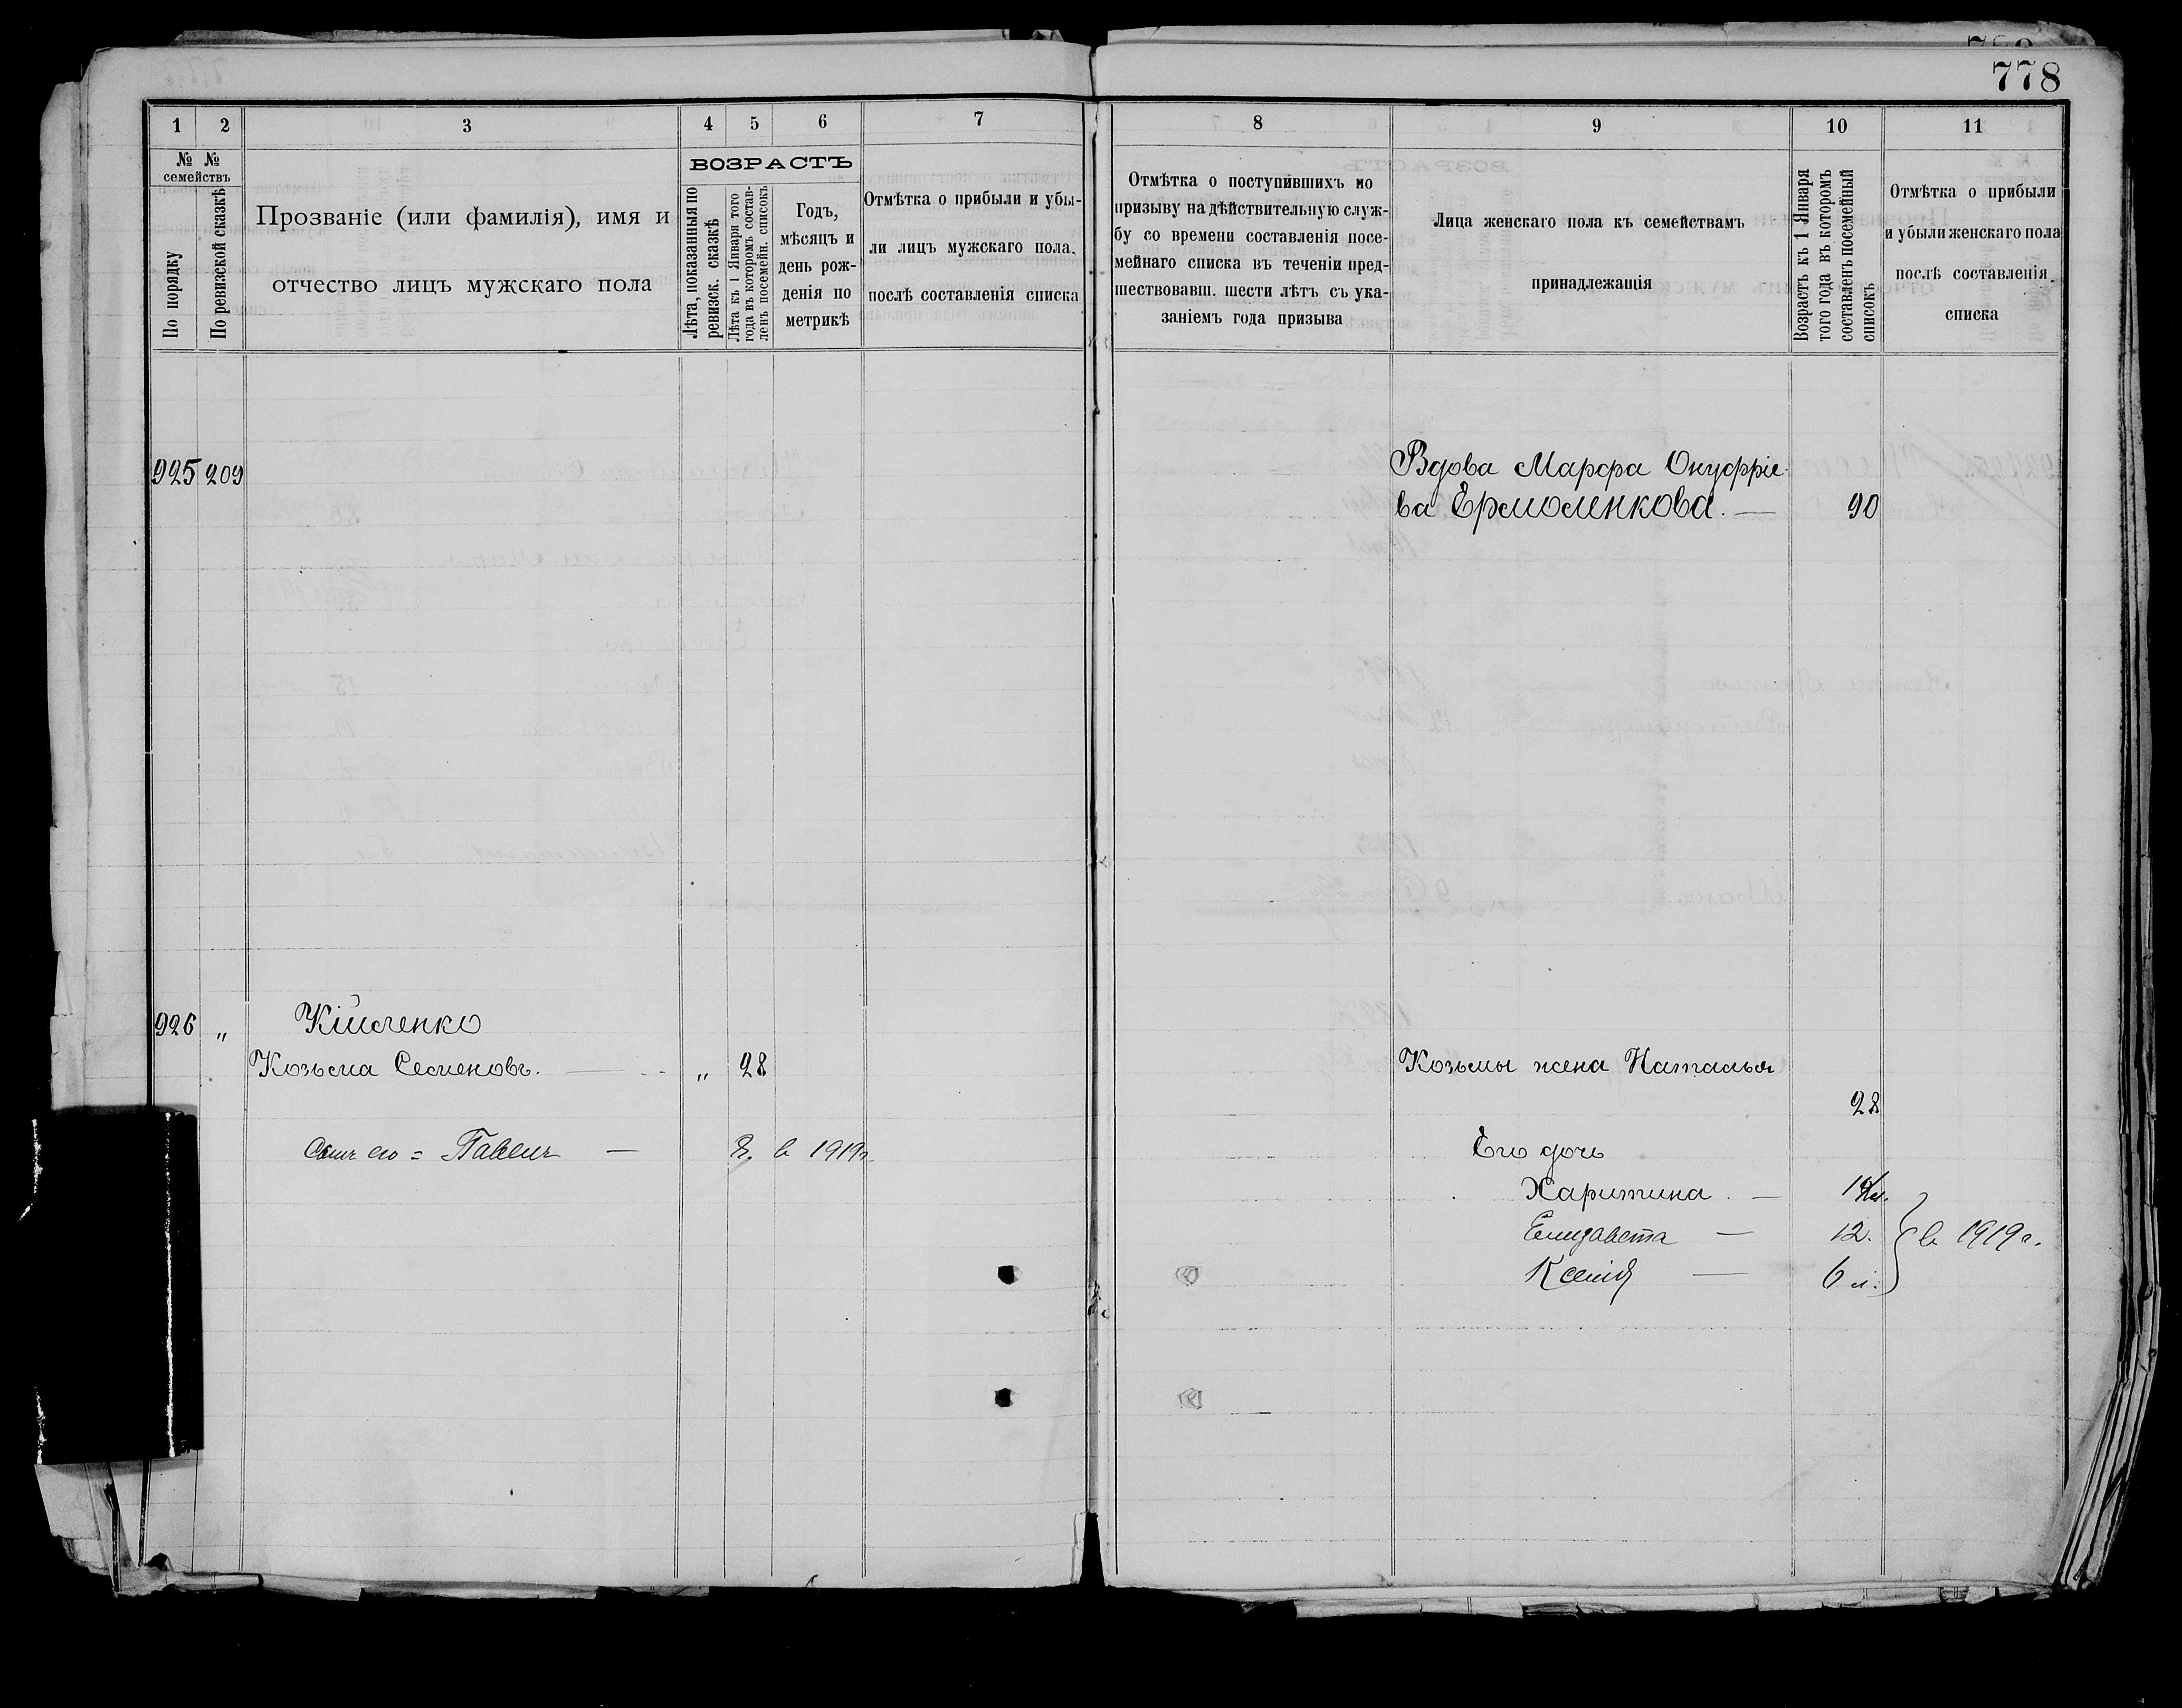 778
1
2
3
4
5
6
7
№ №
семействъ
По порядку
По ревизской сказкѣ
Прозваніе (или фамилія), имя и
отчество лицъ мужскаго пола
ВОЗРАСТЪ
Лѣта, показанныя по
ревизск. сказкѣ
Лѣта къ 1 Января того
года въ которомъ состав-
ленъ посемейн. списокъ
Годъ,
мѣсяцъ и
день рож-
денія по
метрикѣ
Отмѣтка о прибыли и убы-
ли лицъ мужскаго пола,
послѣ составленія списка
8
9
10
11
Отмѣтка о поступившихъ по
призыву на дѣйствительную служ-
бу со времени составленія посе-
мейнаго списка въ теченіи пред-
шествовавш. шести лѣтъ съ ука-
заніемъ года призыва
Лица женскаго пола къ семействамъ
принадлежащія
Возрастъ къ 1 Января
того года въ которомъ
составленъ посемейный
списокъ
Отмѣтка о прибыли
и убыли женскаго пола
послѣ составленія
списка
925 209
Вдова Марфа Онуфріе-
ва Ермоленкова. — 90
926 "
Кійленко
Козьма Семеновъ. — " 28
Сынъ его = Павелъ — 8. в 1919г
Козьмы жена Наталья
28
Его дочь
Харитина. —
Елизавета — 12.
Ксенія — 6 л.
в 1919г.